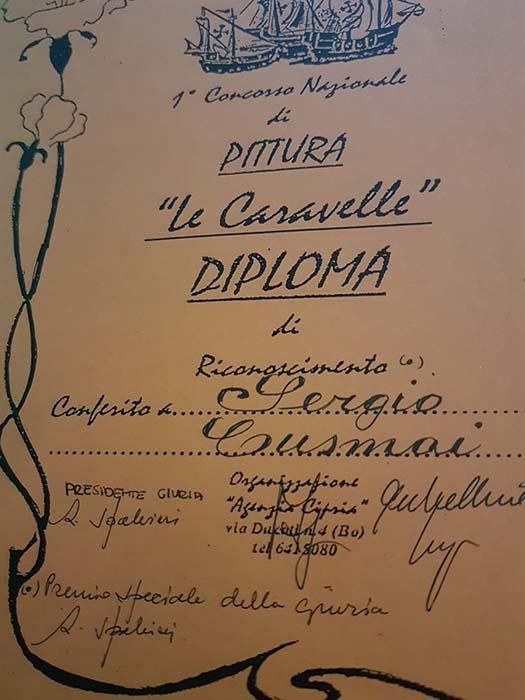 1° Concorso Nazionale
di
PITTURA
"Le Caravelle"
DIPLOMA
di
Riconoscimento (•).
Conferito a.....Sergio
Cusmai
PRESIDENTE GIURIA
Organizzazione
"Agenzia Cipria"
via Ducati n.4 (Bo)
tel 6418080
(•) Premio speciale della Giuria